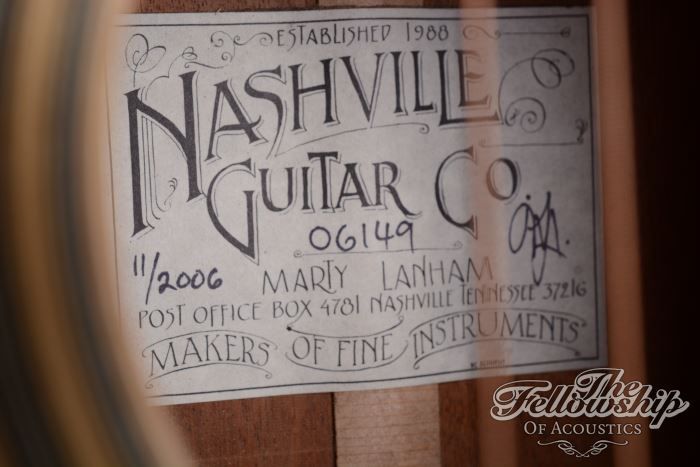 ESTABLISHED 1988
NASHVILLE
GUITAR CO
06149
11/2006 MARTY LANHAM
POST OFFICE BOX 4781 NASHVILLE TENNESSEE 37216
MAKERS OF FINE INSTRUMENTS
The
Fellowship
OF ACOUSTICS